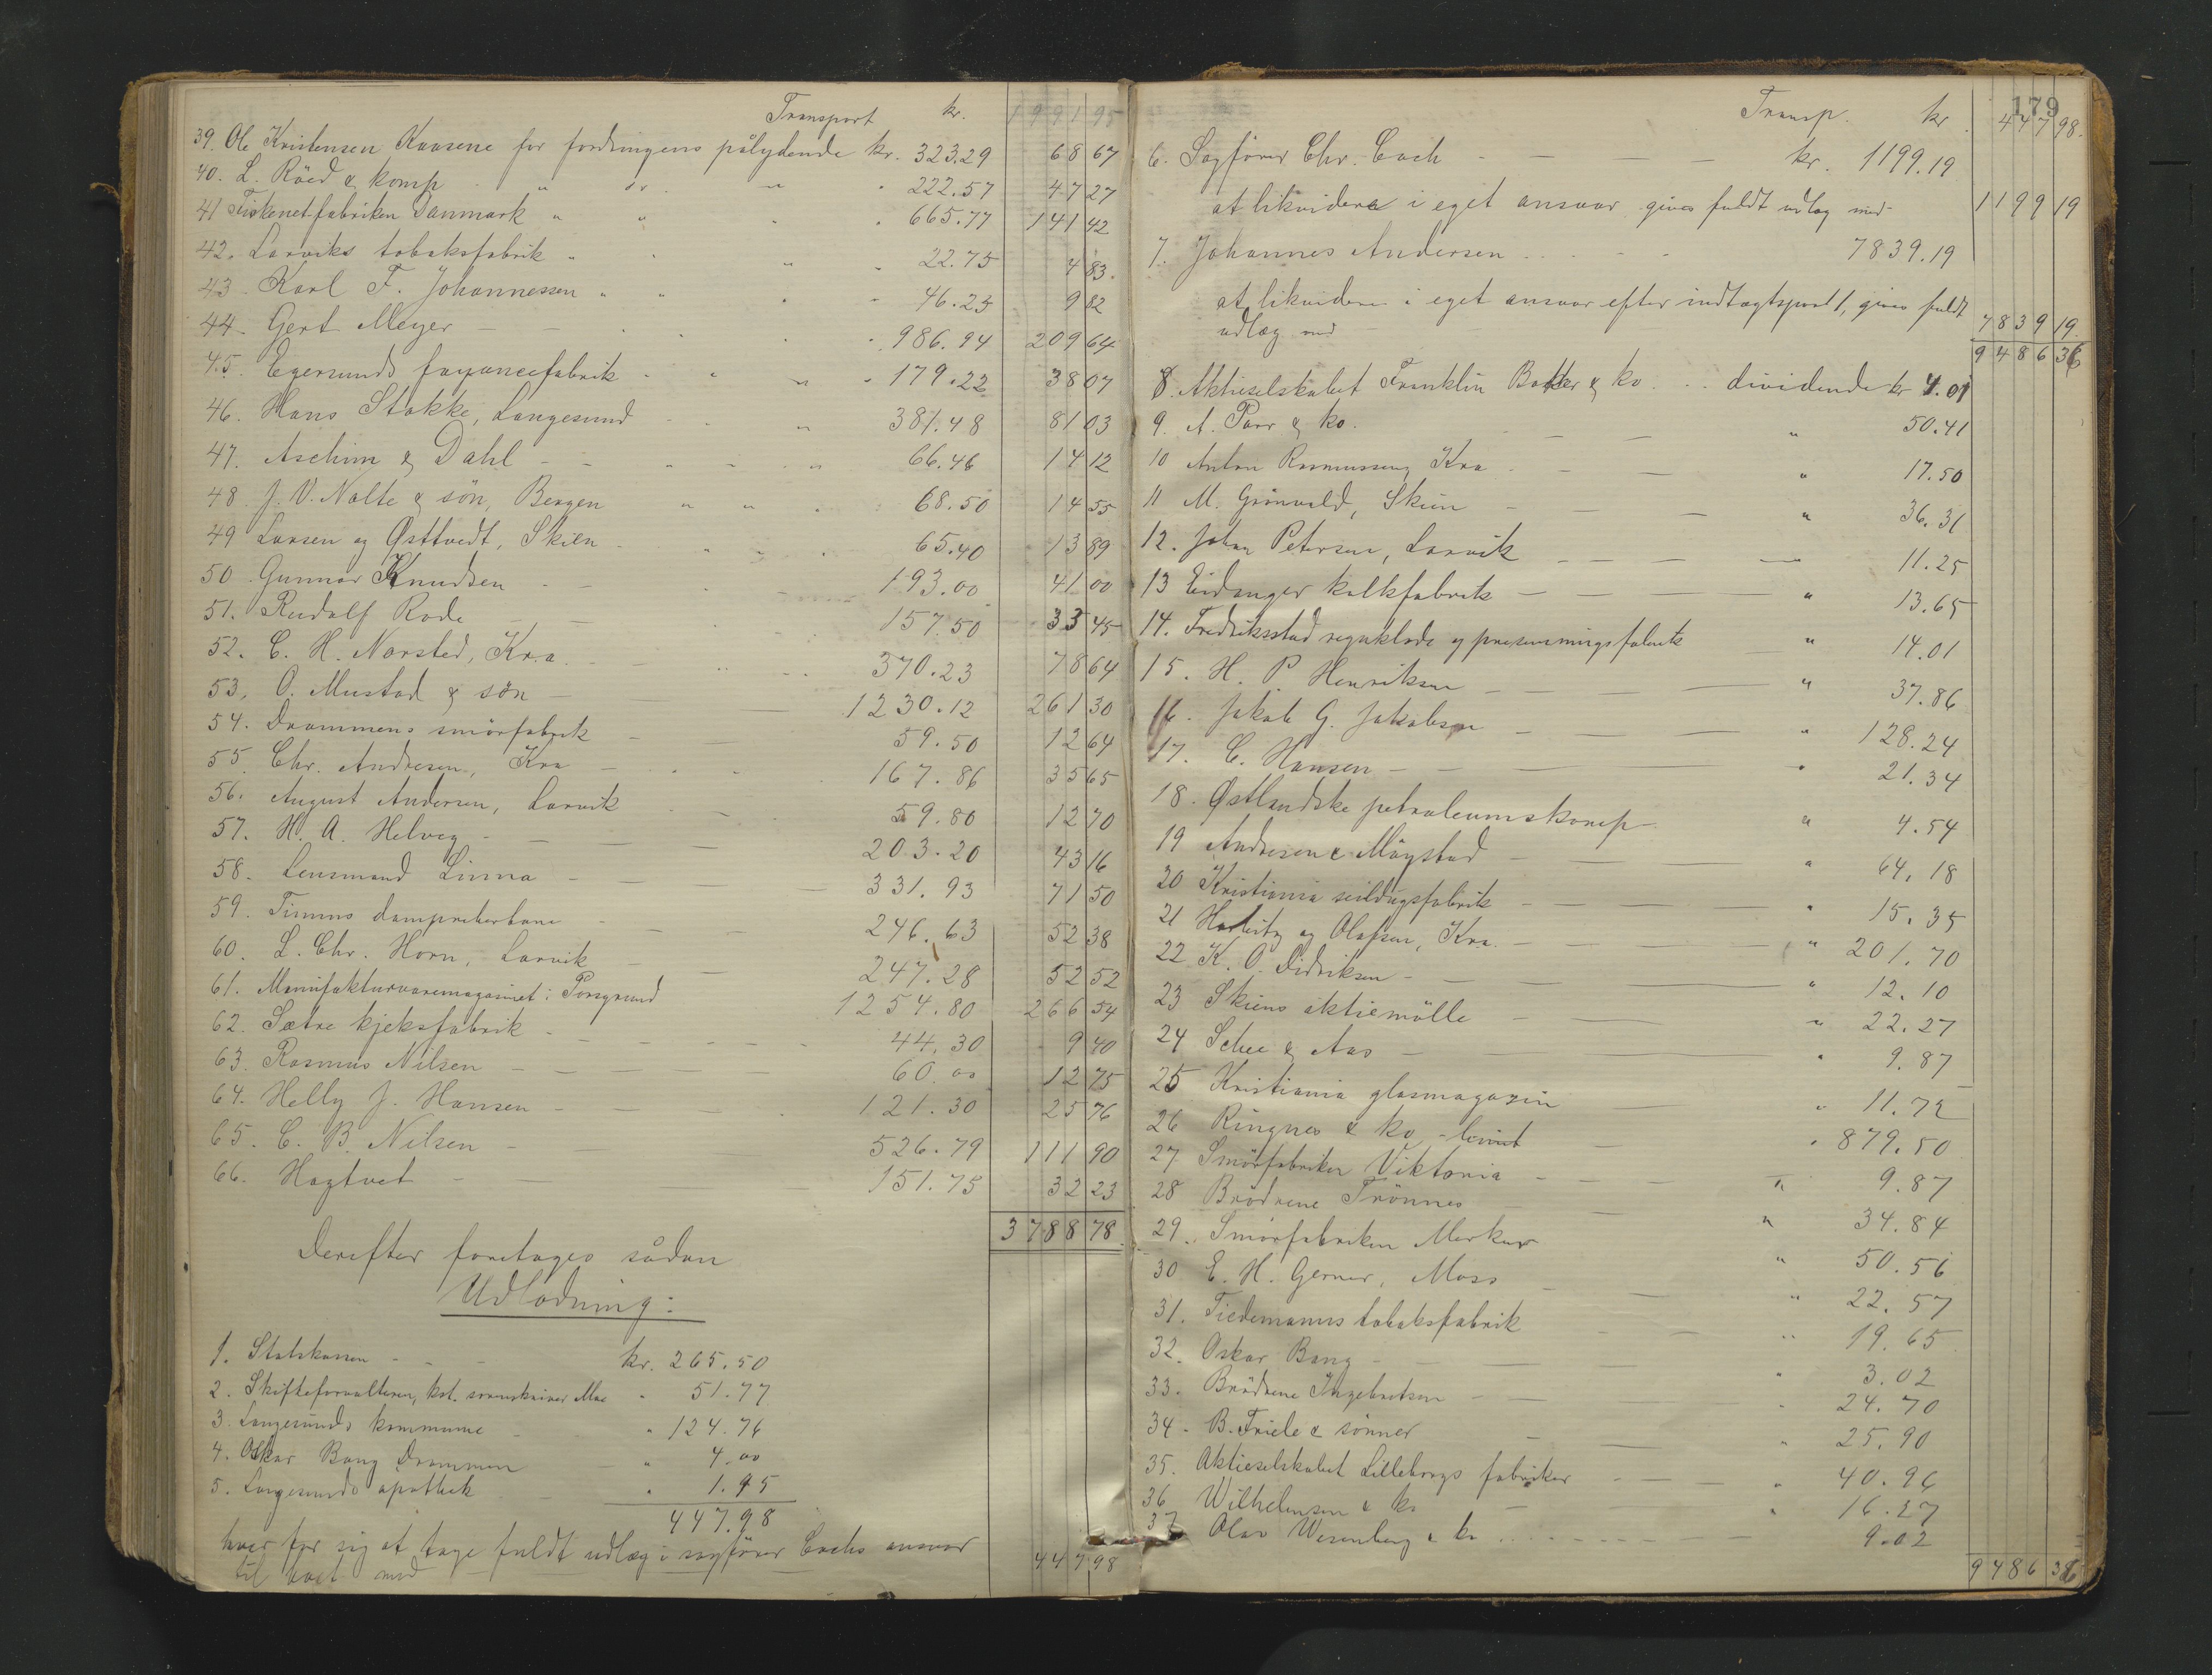 Transport kr. 1991 95
39. Ole Kristensen Kaasene for fordringens pålydende kr. 323.29 68 67
40. L. Röed & komp " " " 222.57 47 27
41 Fiskenetfabriken Danmark " " " 665.77 141 42
42. Larviks tobaksfabrik " " " 22.75 4 83.
43. Karl F. Johannessen " " " 46.25 9 82
44. Gert Meyer - - " " 986.94 209 64
45. Egersunds fayancefabrik - " " " 179.22 38 07
46. Hans Stokke, Langesund - " " 381.48 81 03
47. Aschim & Dahl - - " " " 66.46 14 12
48 J. V. Nolte & søn, Bergen " " " 68.50 14 55
49 Larsen og Østtvedt, Skien - " " " 65.40 13 89
50. Gunnar Knudsen - - 193.00 41 00
51. Rudolf Rode - - 157.50 33 45
52. C. H. Norsted, Kra. - - 370.23 78 64
53. O. Mustad & søn - 1230.12 261 30
54. Drammens smörfabrik - - 59.50 12 64
55. Chr. Andresen, Kra - 167.86 35 65
56. August Andersen, Larvik 59.80 12 70
57. H. A. Helveg - - - 203.20 43 16
58. Lensmand Linna - - - 331.93 71 50
59. Timms dampreberbane - - 246.63 52 38
60. L. Chr. Horn, Larvik - - 247.28 52 52
61. Manufakturvaremagasinet i Porsgrund 1254.80 266 54
62. Sætre kjeksfabrik - - - - 44.30 9 40
63. Rasmus Nilsen - - - 60.00 12 75
64. Helly J. Hansen - - - 121.30 25 76
65. C. B. Nilsen - - 526.79 111 90
66. Hagtvet - - 151.75 32 23
3788 78.
Derefter foretages sådan
Udlodning:
1. Statskassen - - - kr. 265.50
2. Skifteforvalteren, kst. sorenskriver Moe " 51.77
3. Langesunds kommune - " 124.76
4. Oskar Bang Drammen - " 4.00
5. Langesunds apothek - " 1.95
447.98
hver for sig at tage fuldt udlæg i sagförer Cochs ansvar
til boet med 447 98
179
Transp. kr. 447 98.
6. Sagförer Chr. Coch - - - kr. 1199.19
at likvidere i eget ansvar gives fuldt udlæg med 1199 19
7. Johannes Andersen . . - - 7839.19
at likvidere i eget ansvar efter indtægtspost 1, gives fuldt
udlæg med - 7839 19.
9486 36
8. Aktieselskabet Franklin Bakker & ko . . dividende kr 4.01
9. A. Parr & ko. - - - " 50.41
10 Anton Rasmussen, Kra - - - " 17.50
11 M. Grönvold, Skien - - - " 36.31
12. Johan Petersen, Larvik - - - - 11.25
13 Eidanger kalkfabrik - - - - " 13.65
14. Fredriksstad regnklæde og presenningsfabrik - " 14.01
15. H. P Henriksen - - - - " 37.86
16. Jakob G. Jakobsen - - - - " 128.24
17. C. Hansen - - - - " 21.34
18. Østlandske petroleumskomp - " 4.54
19 Andresen & Mögstad - - - " 64.18
20 Kristiania seildugsfabrik - - - " 15.35
21 og Olafsen, Kra. - - - " 201.70
22 K. O. Didriksen - - - - " 12.10
23 Skiens aktiemölle - - - " 22.27
24 Schee & Aas - - - " 9.87
25 Kristiania glasmagasin - - " 11.72
26 Ringnes & ko, - - - " 879.50
27 Smörfabriken Viktoria - - - " 9.87
28 Brödrene Trönnes - - - " 34.84
29. Smörfabriken Merkur " 50.56
30 E. H. Gerner, Moss - - - " 22.57
31. Tiedemanns tobaksfabrik - - - " 19.65
32. Oskar Bang - - - - " 3.02
33. Brödrene Ingebretsen - - - " 24.70
34 - B. Friele & sönner - - - " 25.90
35. Aktieselskabet Lilleborgs fabriker - - - " 40.96
36 Wilhelmsen & ko - - - " 16.27
37 Olav Wesenberg & ko . . . - - - - 9.02
9486 36